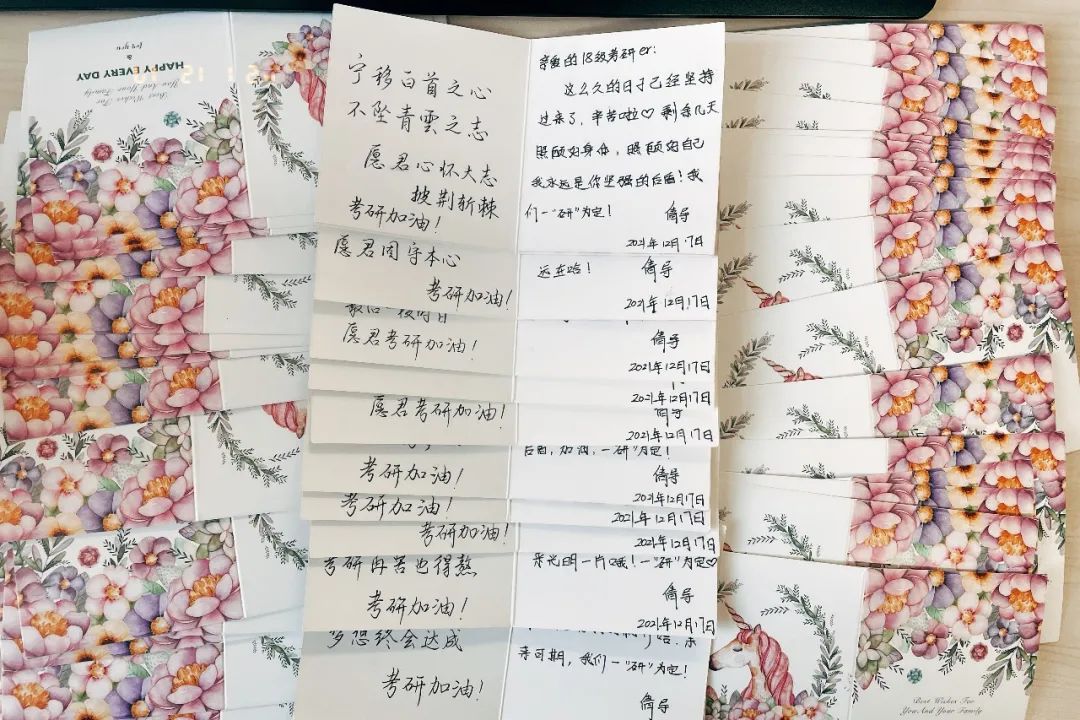 宁移白首之心
不坠青雲之志
愿君心怀大志
披荆斩棘
考研加油！
亲爱的18级考研er：
这么久的日子已经坚持
过来了，辛苦啦♡ 剩余几天
照顾好身体，照顾好自己
我永远是你坚强的后盾！我
们一"研"为定！
倚导
2021年12月17日
愿君固守本心
考研加油！
远在哈！
倚导
2021年12月17日
愿君考研加油！
倚导
2021年12月17日
2021年12月17日
愿君考研加油！
2021年12月17日
后盾，加油，一"研"为定！
考研加油！
倚导
2021年12月17日
考研加油！
2021年12月17日
考研加油！
2021年12月17日
考研再苦也得熬
考研加油！
来光明一片哦！一"研"为定♡
倚导
2021年12月17日
梦想终会达成
考研加油！
来可期，我们一"研"为定！
倚导
HAPPY EVERY DAY
&
for you
Best Wishes For
You And Your Family
Best Wishes For
You And Your Family